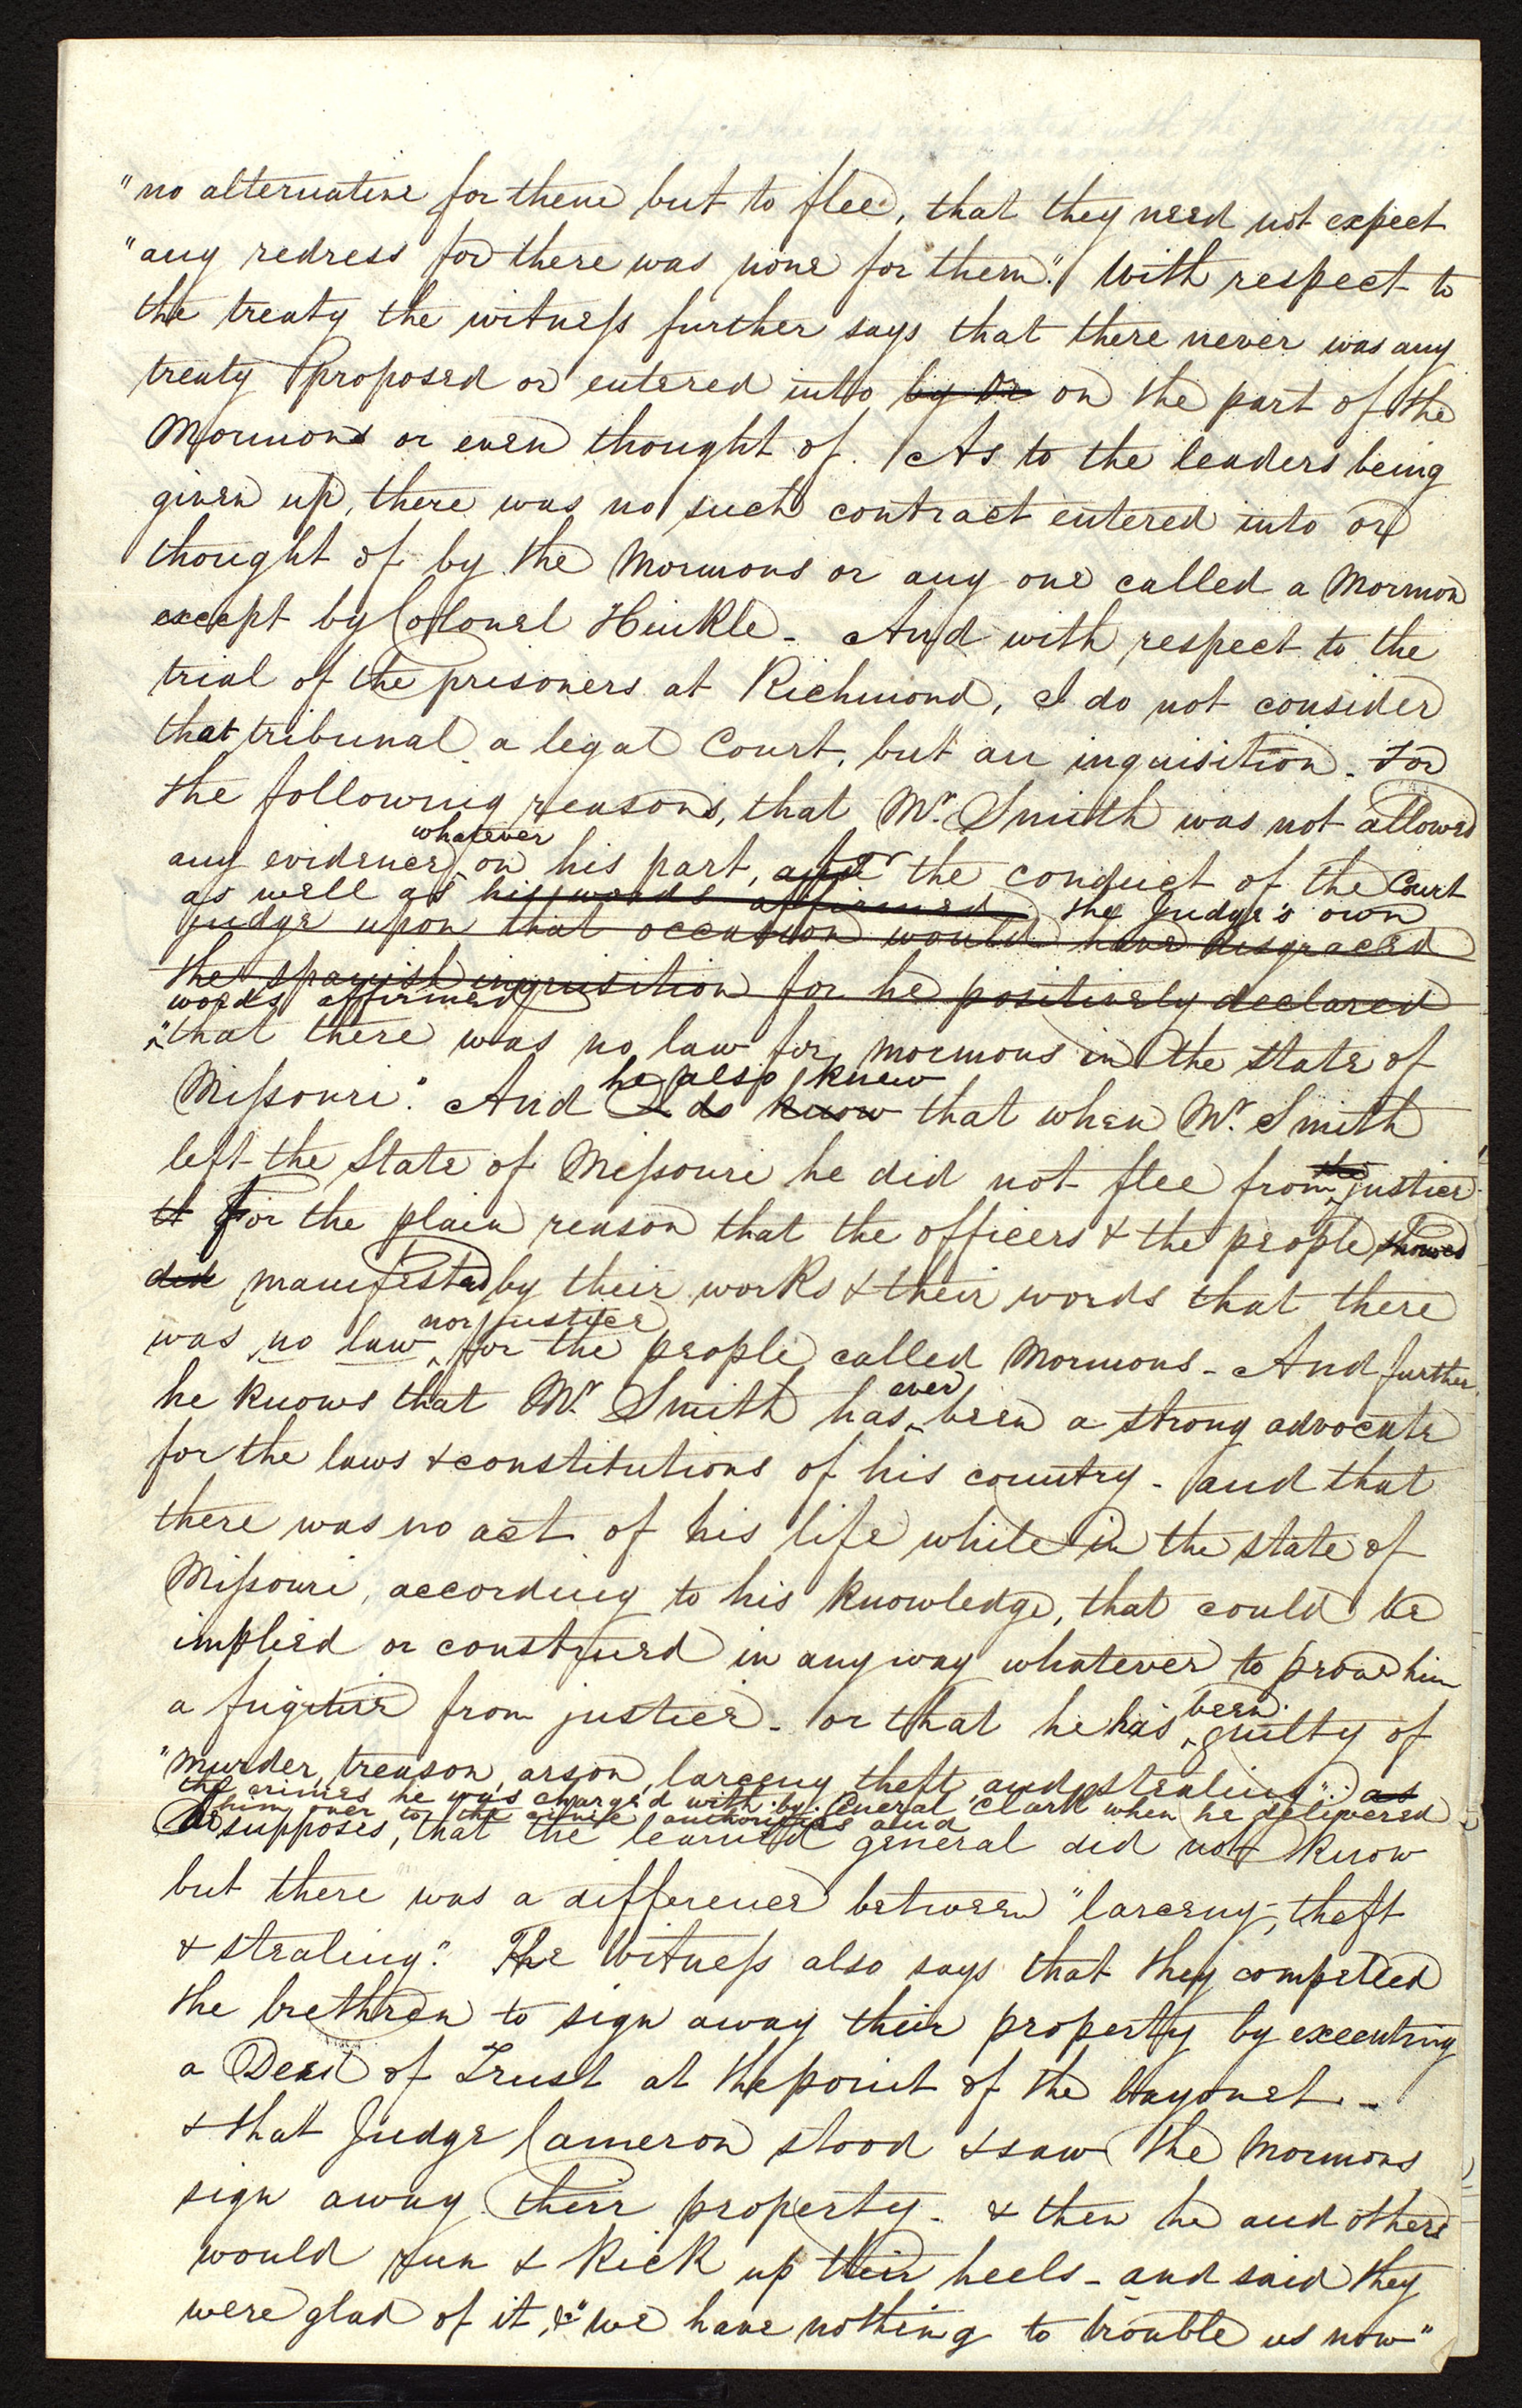 "no alternative for them but to flee, that they need not expect
"any redress for there was none for them". With respect to
the treaty the witness further says that there never was any
treaty proposed or entered into by or on the part of the
Mormons or even thought of. As to the leaders being
given up, there was no such contract entered into or
thought of by the Mormons or any one called a Mormon
except by Colonel Hinkle - And with respect to the
trial of the prisoners at Richmond, I do not consider
that tribunal a legal Court, but an inquisition - for
the following reasons, that Mr. Smith was not allowed
whatever
any evidence on his part, for the conduct of the Court
as well as his words affirmed the Judge's own
judge upon that occasion would have disgraced
the spanish inquisition for he positively declared
words affirmed
"that there was no law for mormons in the state of
he also knew
Missouri." And I do know that when Mr. Smith
left the State of Missouri he did not flee from the justice
it For the plain reason that the officers & the people showed
did manifested by their works & their words that there
nor justice
was no law for the people called Mormons - And further
ever
he knows that Mr. Smith has been a strong advocate
for the laws & constitutions of his country - and that
there was no act of his life while in the state of
Missouri, according to his knowledge, that could be
implied or construed in any way whatever to prove him
a fugitive from justice - or that he has been guilty of
"Murder, treason, arson, larceny, theft, and stealing": as
the crimes he was charged with by General Clark when he delivered
him over to the civil authorities and
he supposes, that the learned general did not know
but there was a difference between "larceny, theft
& stealing." The witness also says that they compelled
the brethren to sign away their property by executing
a Deed of Trust at the point of the bayonet -
& that Judge Cameron stood & saw the Mormons
sign away their property - & then he and others
would run & kick up their heels - and said they
were glad of it, & "we have nothing to trouble us now"